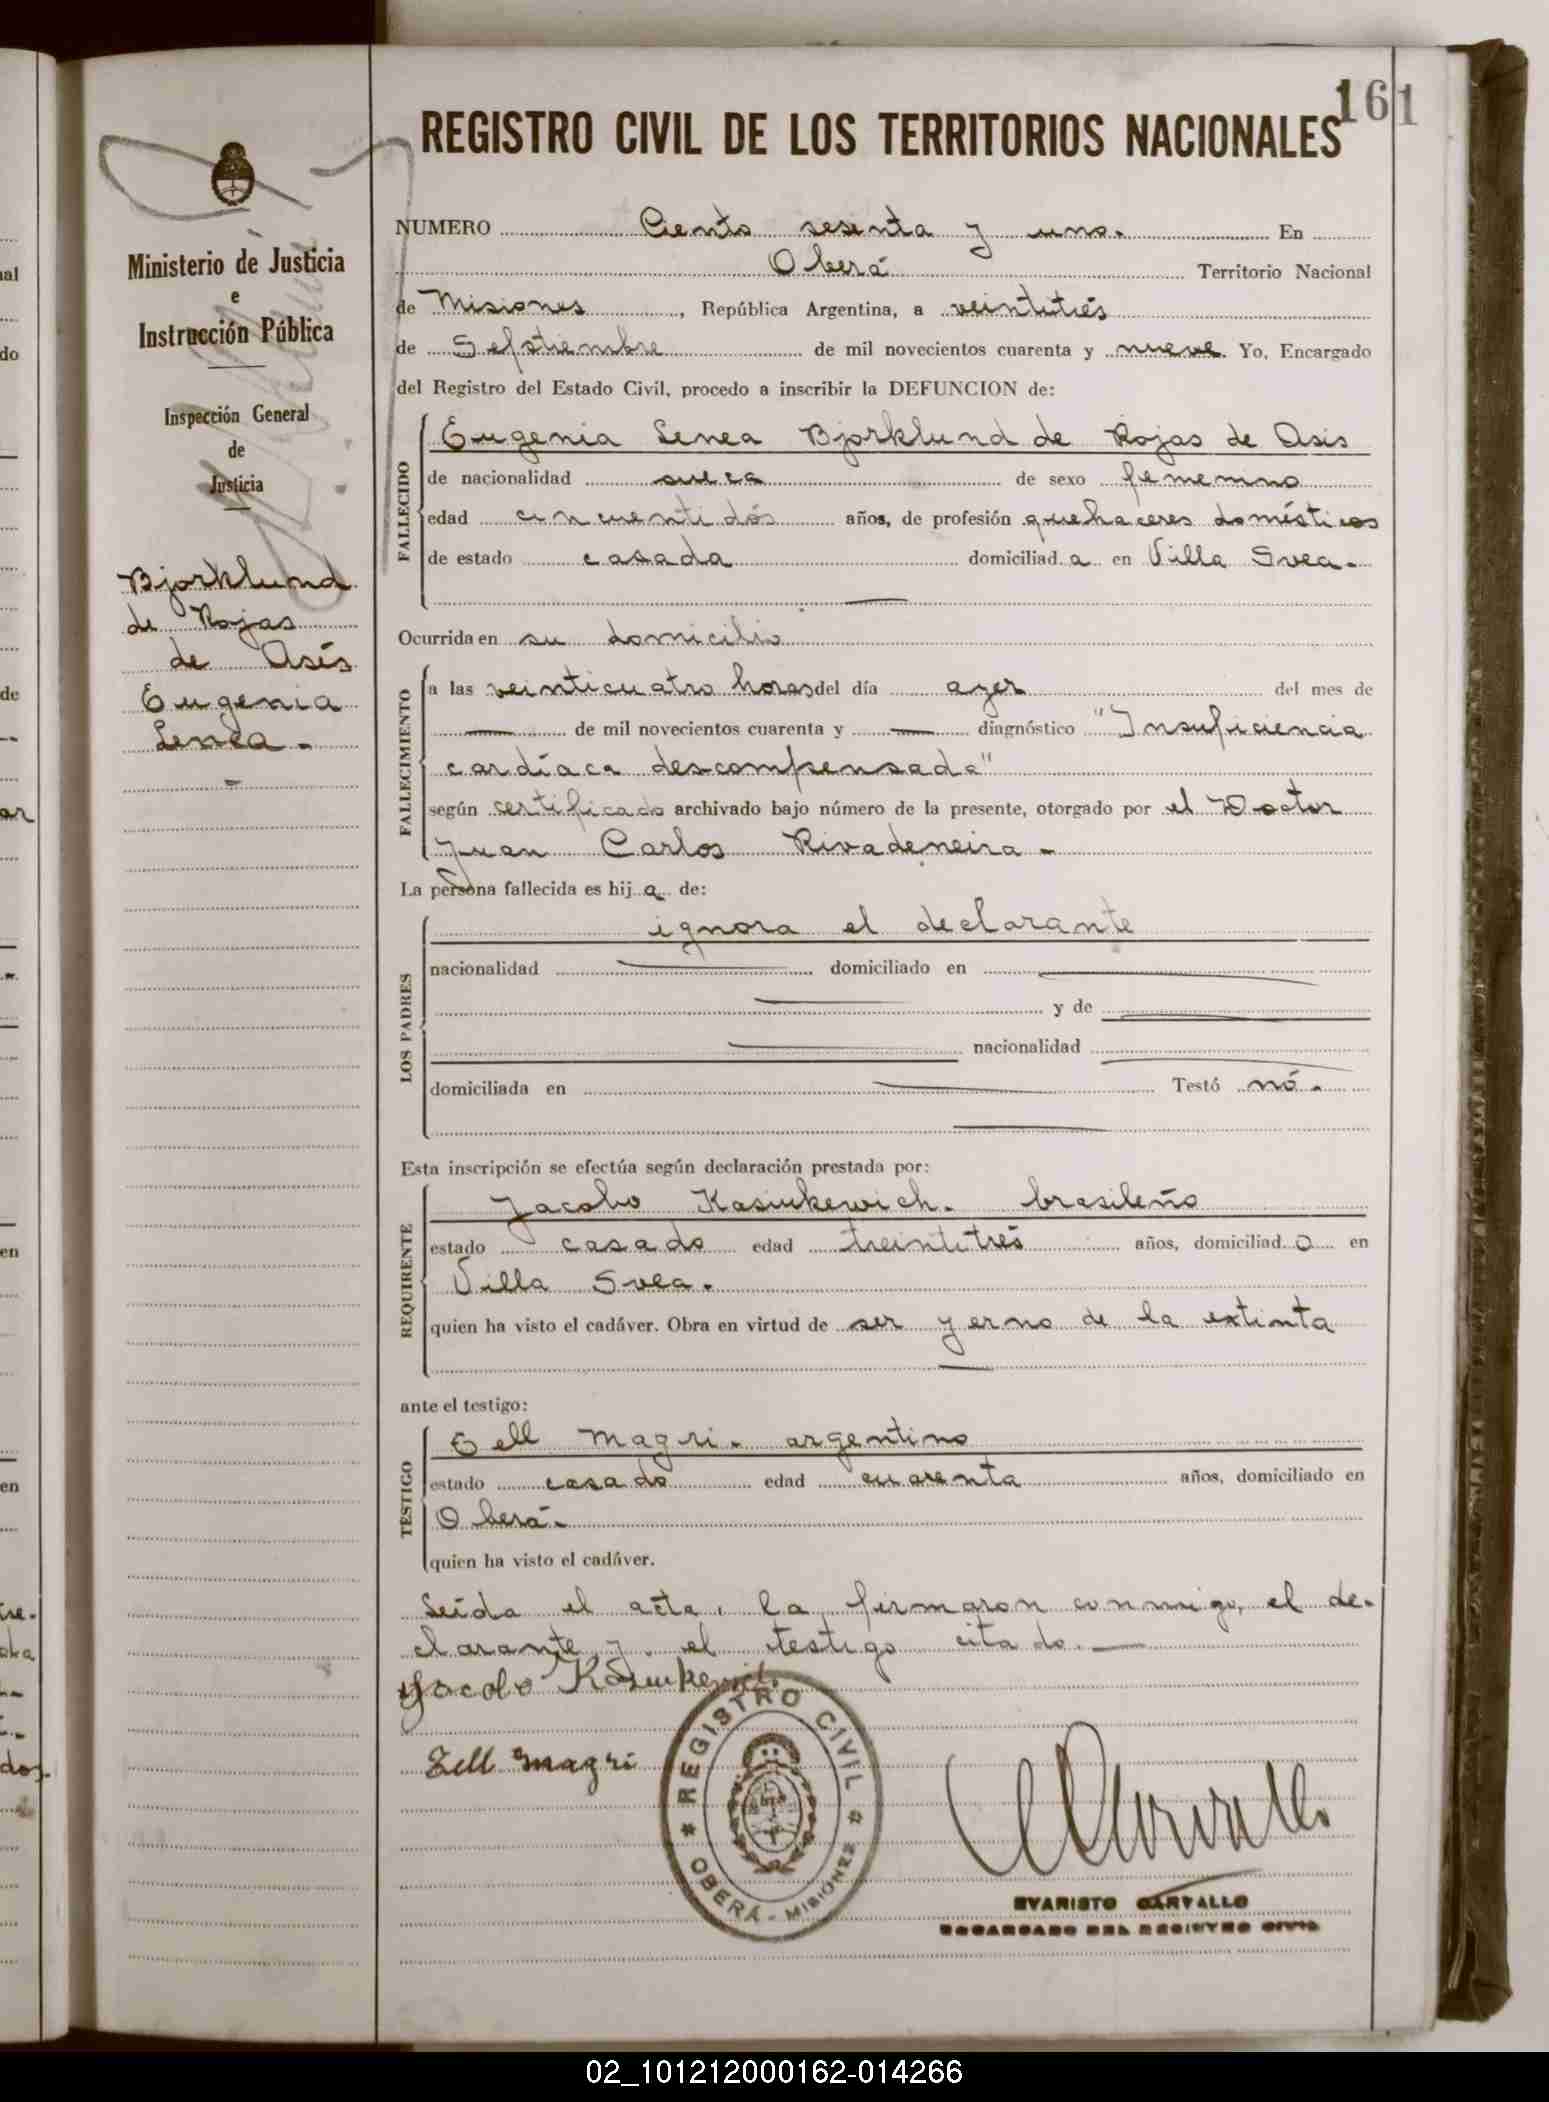 161
REGISTRO CIVIL DE LOS TERRITORIOS NACIONALES
Ministerio de Justicia
e
Instrucción Pública
Inspección General
de
Justicia
Bjorklund
de Rojas
de Asís
Eugenia
Lenea.
NUMERO Ciento sesenta y uno. En
Oberá Territorio Nacional
de Misiones, República Argentina, a veintitrés
de Sepstiembre de mil novecientos cuarenta y nueve. Yo, Encargado
del Registro del Estado Civil, procedo a inscribir la DEFUNCION de:
FALLECIDO
Eugenia Lenea Bjorklund de Rojas de Asis
de nacionalidad sueca de sexo femenino
edad cincuentidós años, de profesión quehaceres domésticos
de estado casada domiciliad a en Villa Svea.
Ocurrida en su domicilio
FALLECIMIENTO
a las veinticuatro horas del día ayer del mes de
de mil novecientos cuarenta y diagnóstico "Insuficiencia
cardíaca descompensada"
según certificado archivado bajo número de la presente, otorgado por el Doctor
Juan Carlos Rivadeneira.
La persona fallecida es hij a de:
LOS PADRES
ignora el declarante
nacionalidad domiciliado en
y de
nacionalidad
domiciliada en Testó nó.
Esta inscripción se efectúa según declaración prestada por:
REQUIRENTE
Jacobo Kasiukewich. brasileño
estado casado edad treintitrés años, domiciliad o en
Villa Svea.
quien ha visto el cadáver. Obra en virtud de ser yerno de la extinta
ante el testigo:
TESTIGO
Tell Magri. argentino
estado casado edad cuarenta años, domiciliado en
Oberá.
quien ha visto el cadáver.
Leída el acta, la firmaron conmigo, el de-
clarante y el testigo citado.
Jacobo
Tell Magri
REGISTRO CIVIL
OBERÁ - MISIONES
EVARISTO CARVALLO
ENCARGADO DEL REGISTRO CIVIL
02_101212000162-014266